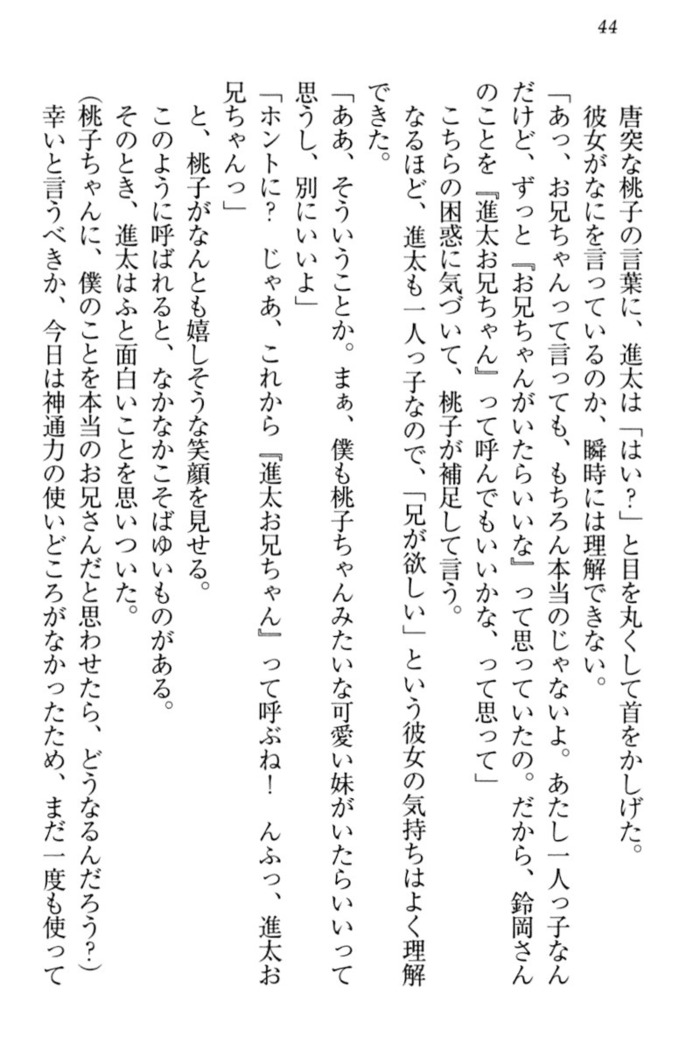 44
唐突な桃子の言葉に、進太は「はい？」と目を丸くして首をかしげた。
彼女がなにを言っているのか、瞬時には理解できない。
「あっ、お兄ちゃんって言っても、もちろん本当のじゃないよ。あたし一人っ子なん
だけど、ずっと『お兄ちゃんがいたらいいな』って思っていたの。だから、鈴岡さん
のことを『進太お兄ちゃん』って呼んでもいいかな、って思って」
こちらの困惑に気づいて、桃子が補足して言う。
なるほど、進太も一人っ子なので、「兄が欲しい」という彼女の気持ちはよく理解
できた。
「ああ、そういうことか。まぁ、僕も桃子ちゃんみたいな可愛い妹がいたらいいって
思うし、別にいいよ」
「ホントに？　じゃあ、これから『進太お兄ちゃん』って呼ぶね！　んふっ、進太お
兄ちゃんっ」
と、桃子がなんとも嬉しそうな笑顔を見せる。
このように呼ばれると、なかなかこそばゆいものがある。
そのとき、進太はふと面白いことを思いついた。
（桃子ちゃんに、僕のことを本当のお兄さんだと思わせたら、どうなるんだろう？）
幸いと言うべきか、今日は神通力の使いどころがなかったため、まだ一度も使って